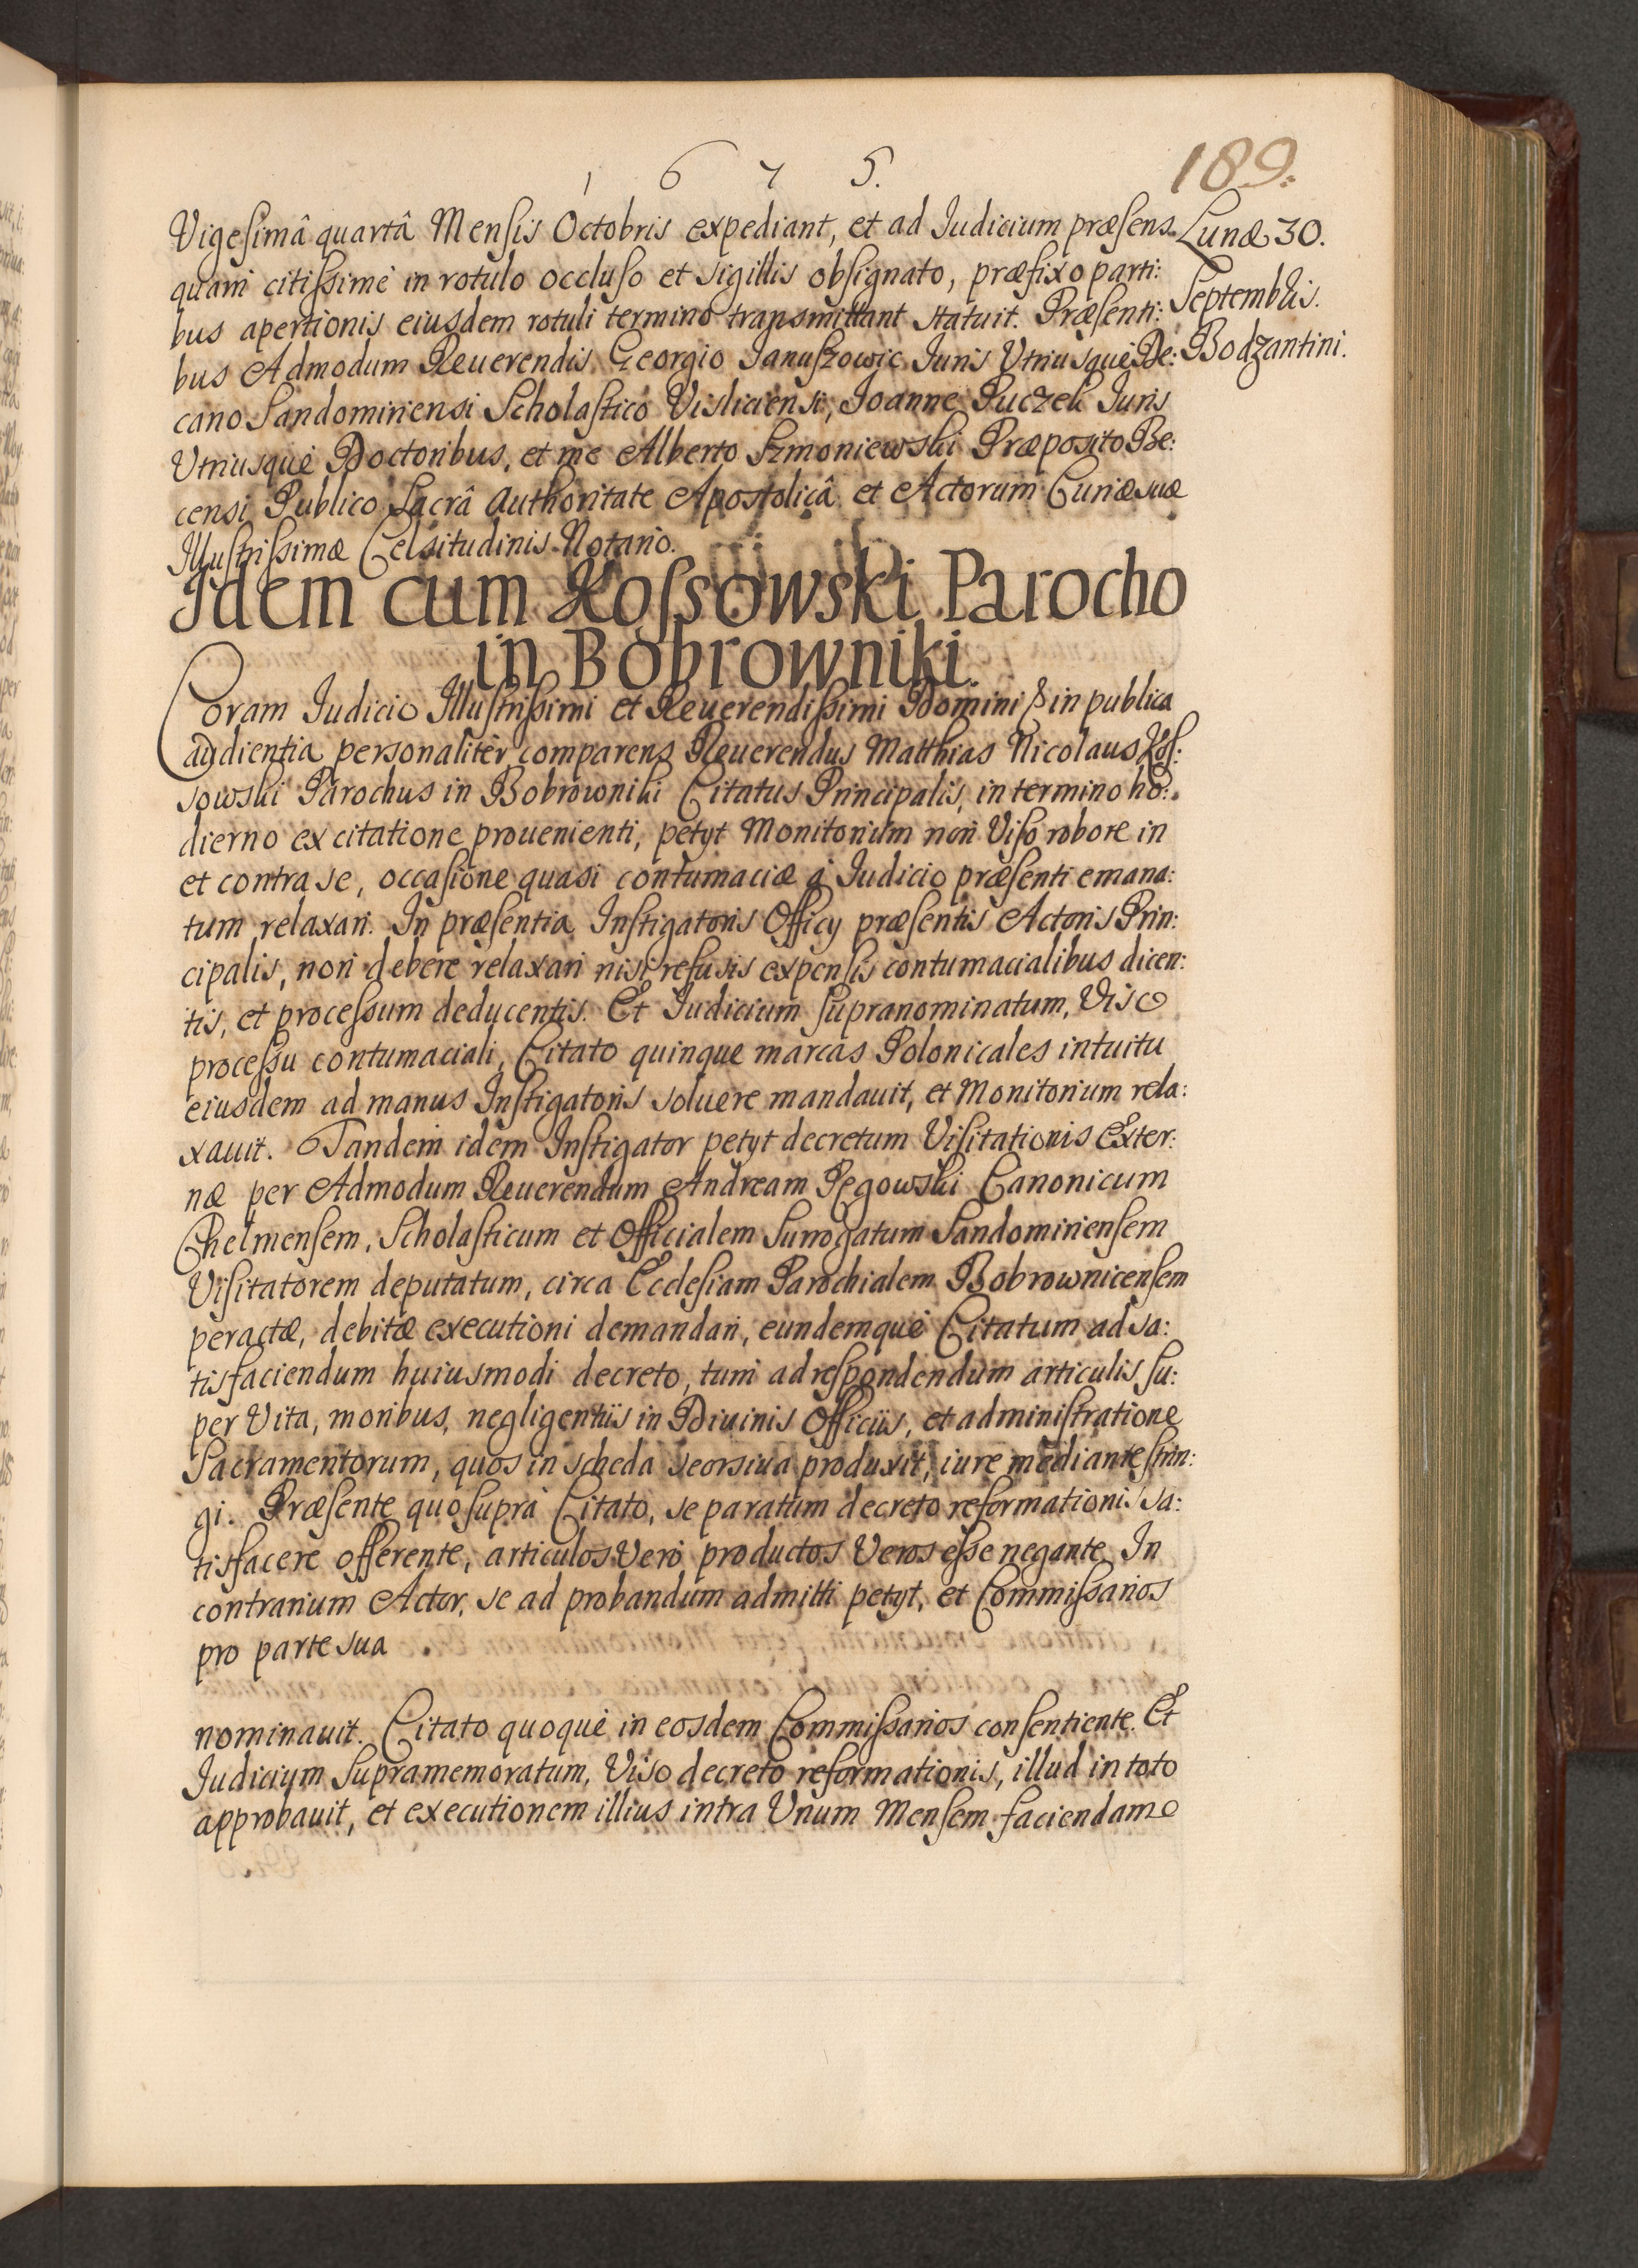 1 6 7 5.
189.
Vigesimâ quartâ Mensis Octobris expediant, et ad Judicium præsens
quam citissimè in rotulo occluso et sigillis obsignato, præfixo parti:
bus apertionis eiusdem rotuli termino transmittant statuit. Præsenti:
bus Admodum Reuerendis Georgio Januszowic Juris Vtriusquè De:
cano Sandomiriensi Scholastico Visliciensi, Joanne Puczek Juris
Vtriusquè Doctoribus, et me Alberto Szmoniewski Præposito Be:
censi Publico Sacrâ Authoritate Apostolicâ et Actorum Curiæ suæ
Illustrissimæ Celsitudinis Notario.
Lunæ 30.
Septembris.
Bodzantini.
Idem cum Kossowski Parocho
in Bobrowniki.
Coram Judicio Illustrissimi et Reuerendissimi Domini & in publica
audientia personalitèr comparens Reuerendus Matthias Nicolaus Kos:
sowski Parochus in Bobrowniki Citatus Principalis, in termino ho:
dierno ex citatione prouenienti, petyt Monitorium non Viso robore in
et contra se, occasione quasi contumaciæ à Judicio præsenti emana:
tum relaxari. In præsentia Instigatoris Officy præsentis Actoris Prin:
cipalis, non debere relaxari nisi refusis expensis contumacialibus dicen:
tis, et processum deducentis. Et Judicium supranominatum, Viso
processu contumaciali, Citato quinque marcas Polonicales intuitu
eiusdem ad manus Instigatoris soluere mandauit, et Monitorium rela:
xauit. Tandem idem Instigator petyt decretum Visitationis Exter:
næ per Admodum Reuerendum Andream Pegowski Canonicum
Chelmensem, Scholasticum et Officialem Surrogatum Sandomiriensem
Visitatorem deputatum, circa Ecclesiam Parochialem Bobrownicensem
peractæ, debitæ executioni demandari, eundemquè Citatum ad sa:
tisfaciendum huiusmodi decreto, tum ad respondendum articulis su:
per Vita, moribus, negligentiis in Diuinis Officiis, et administratione
Sacramentorum, quos in scheda seorsiua produxit, iure mediante strin:
gi. Præsente quo suprà Citato, se paratum decreto reformationis sa:
tisfacere offerente, articulos Verò productos Veros esse negante. In
contrarium Actor, se ad probandum admitti petyt, et Commissarios
pro parte sua
nominauit. Citato quoquè in eosdem Commissarios consentiente. Et
Judicium Supramemoratum, Viso decreto reformationis, illud in toto
approbauit, et executionem illius intra Vnum Mensem faciendam